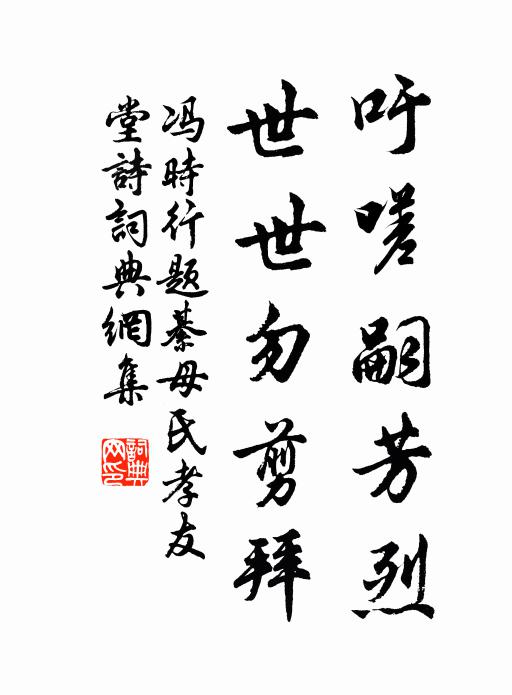 吁嗟嗣芳烈
世世勿剪拜
冯時行题綦母氏孝友
堂詩詞典網集
詞典
网印